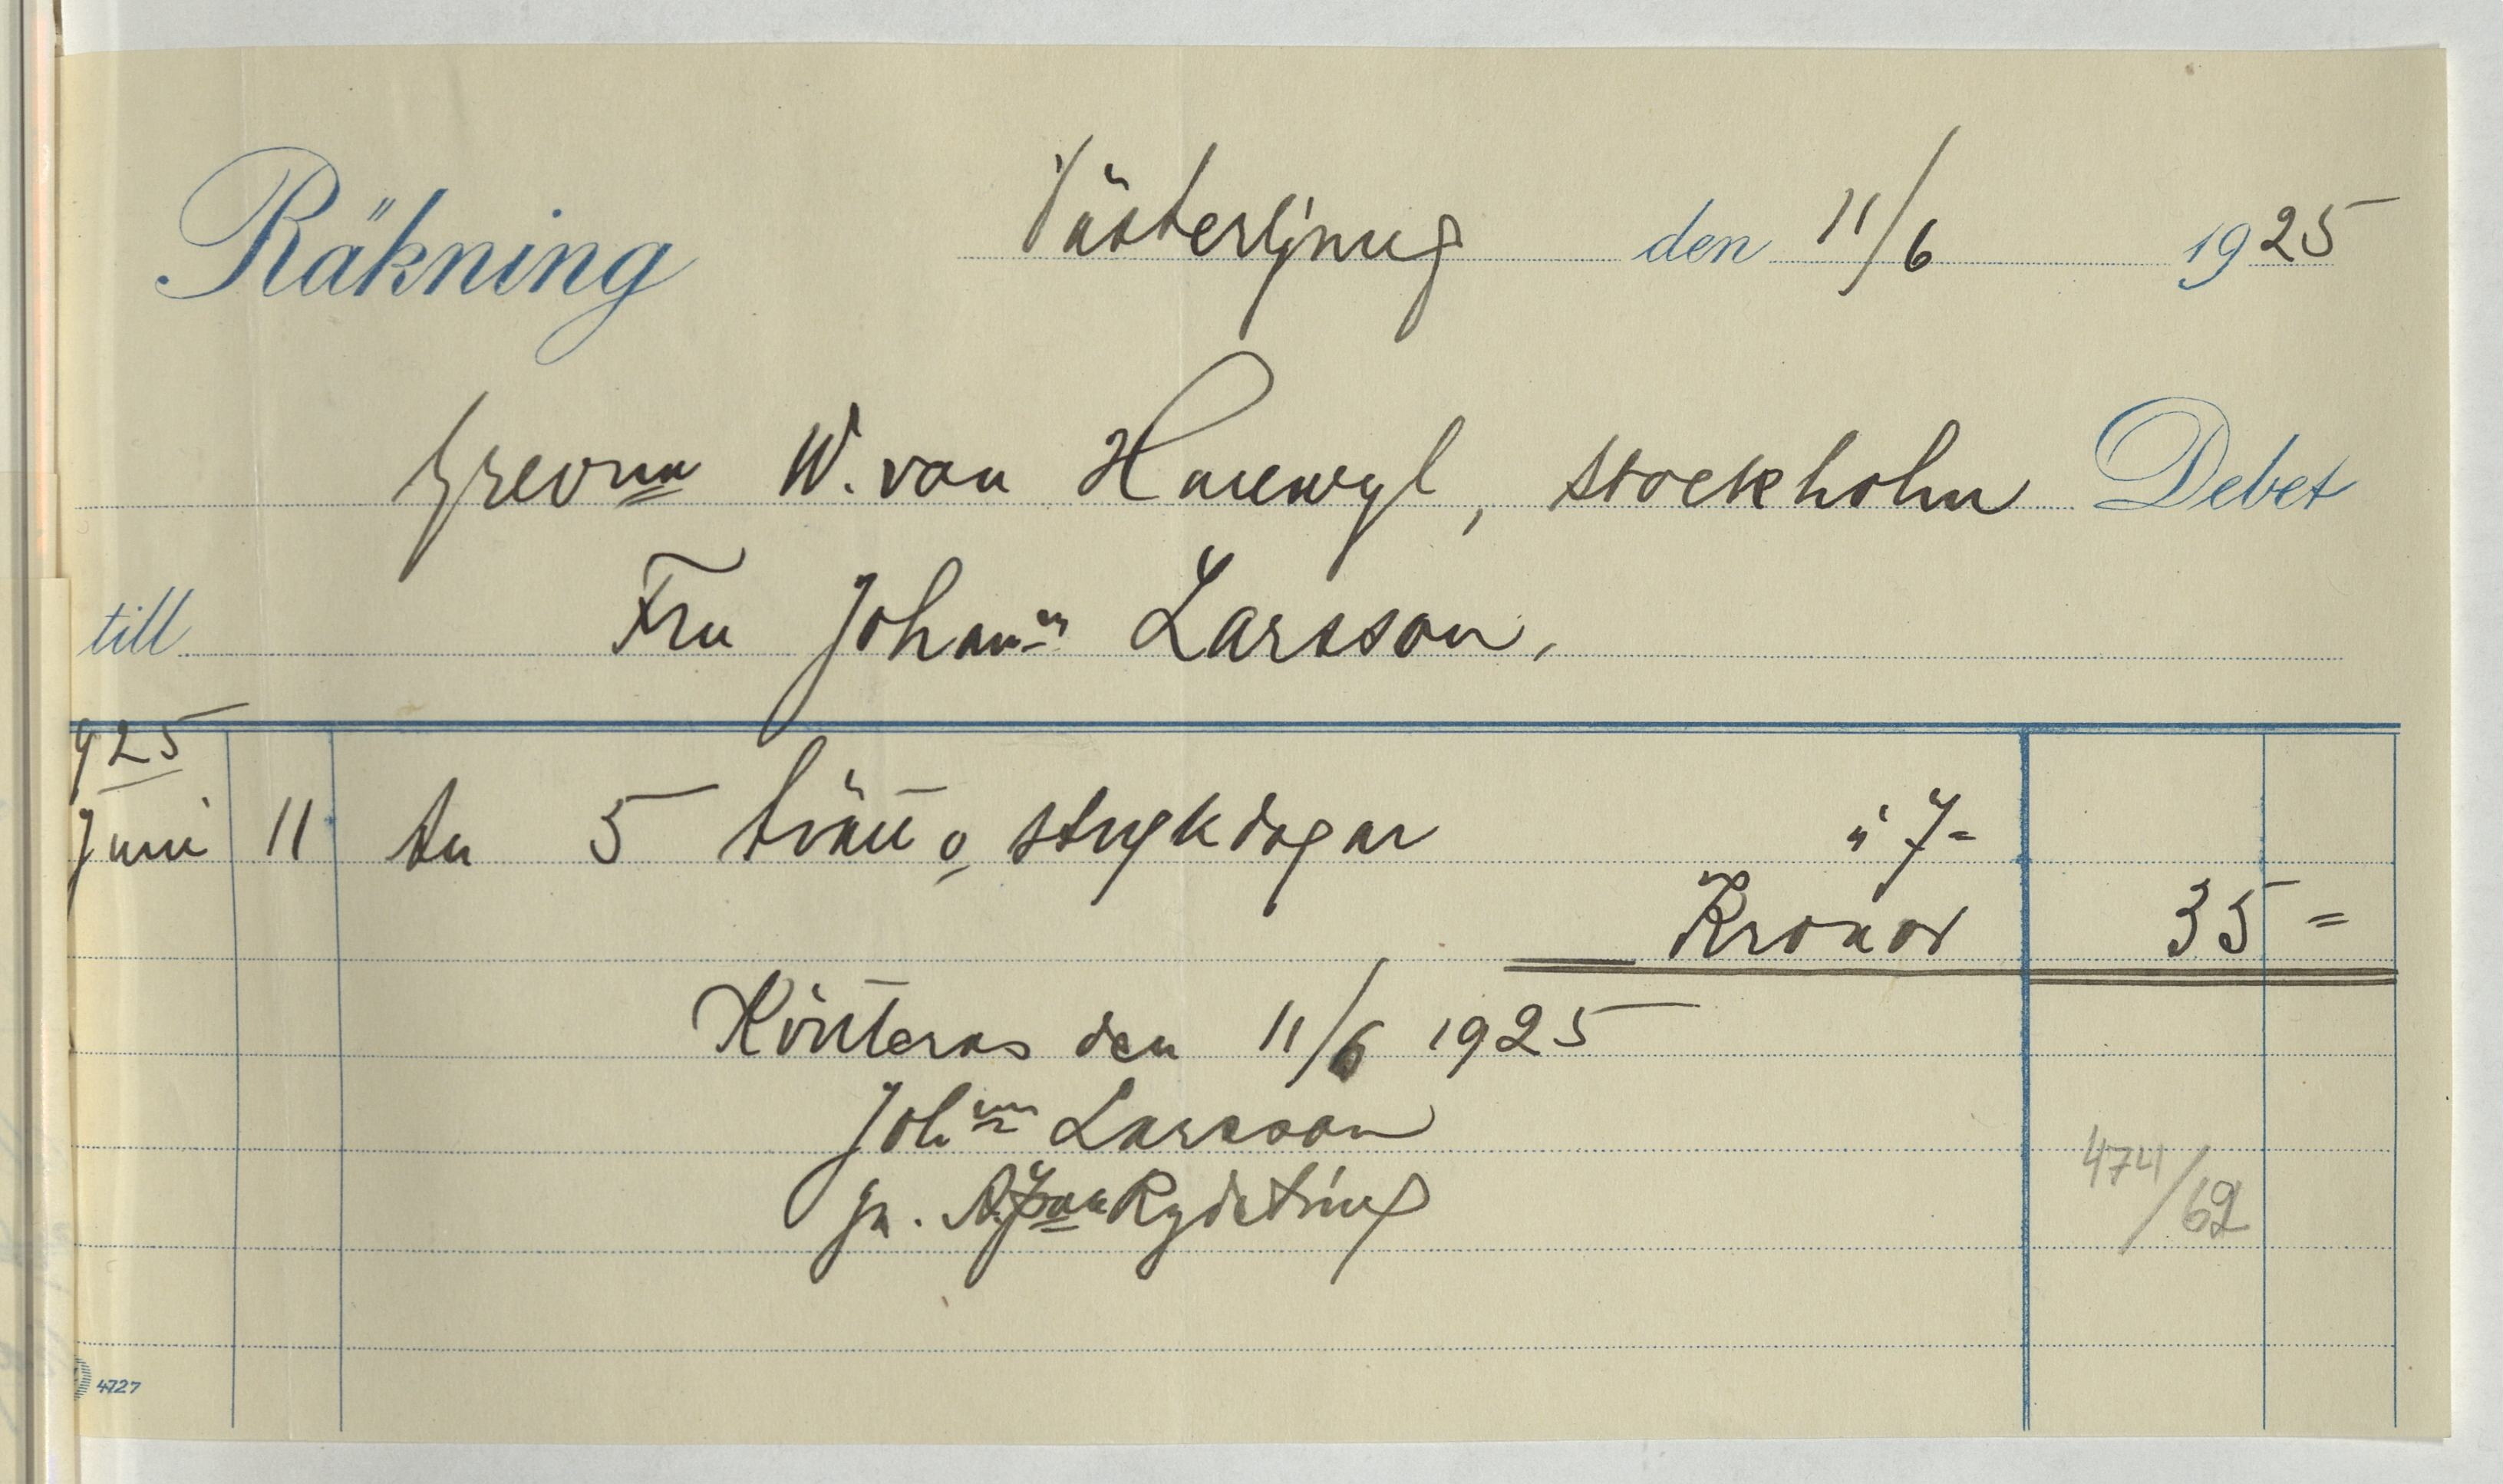 Räkning Västerljung den 11/6 1925
Grevna W. von Hallwyl, Stockholm Debet
till Fru Johanna Larsson,
925
Juni 11 An 5 tvätt o, strykdagar à 7=
Kronor 35=
Kvitteras den 11/6 1925
Johna Larsson
gm. Rydeting
474/62
4727